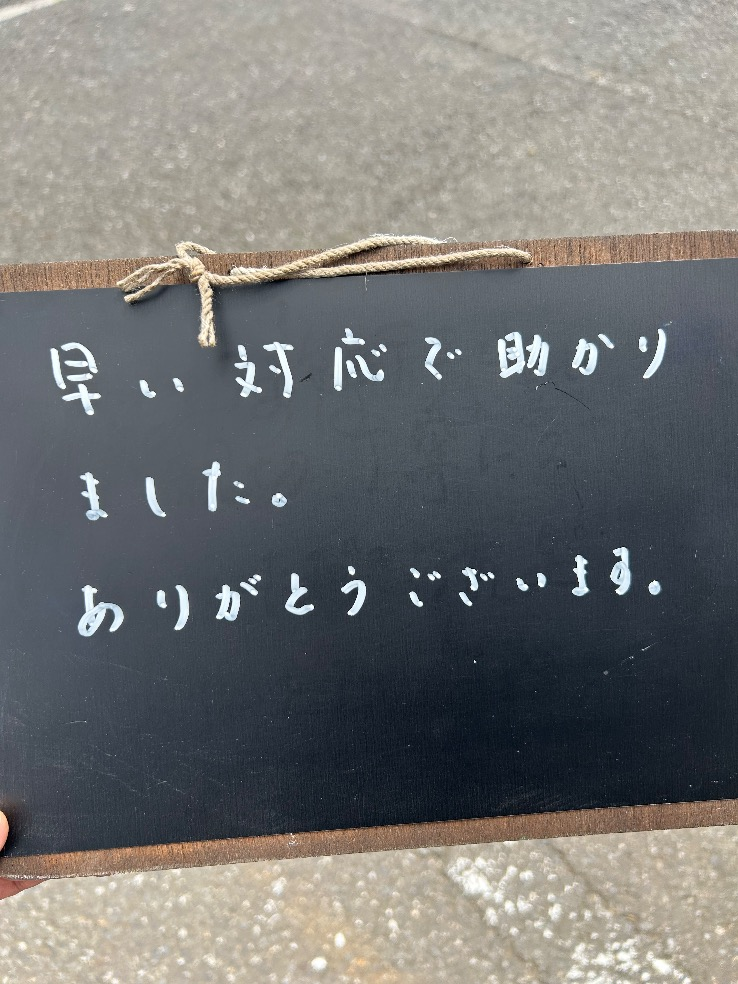 早い対応で助かり
ました。
ありがとうございます。